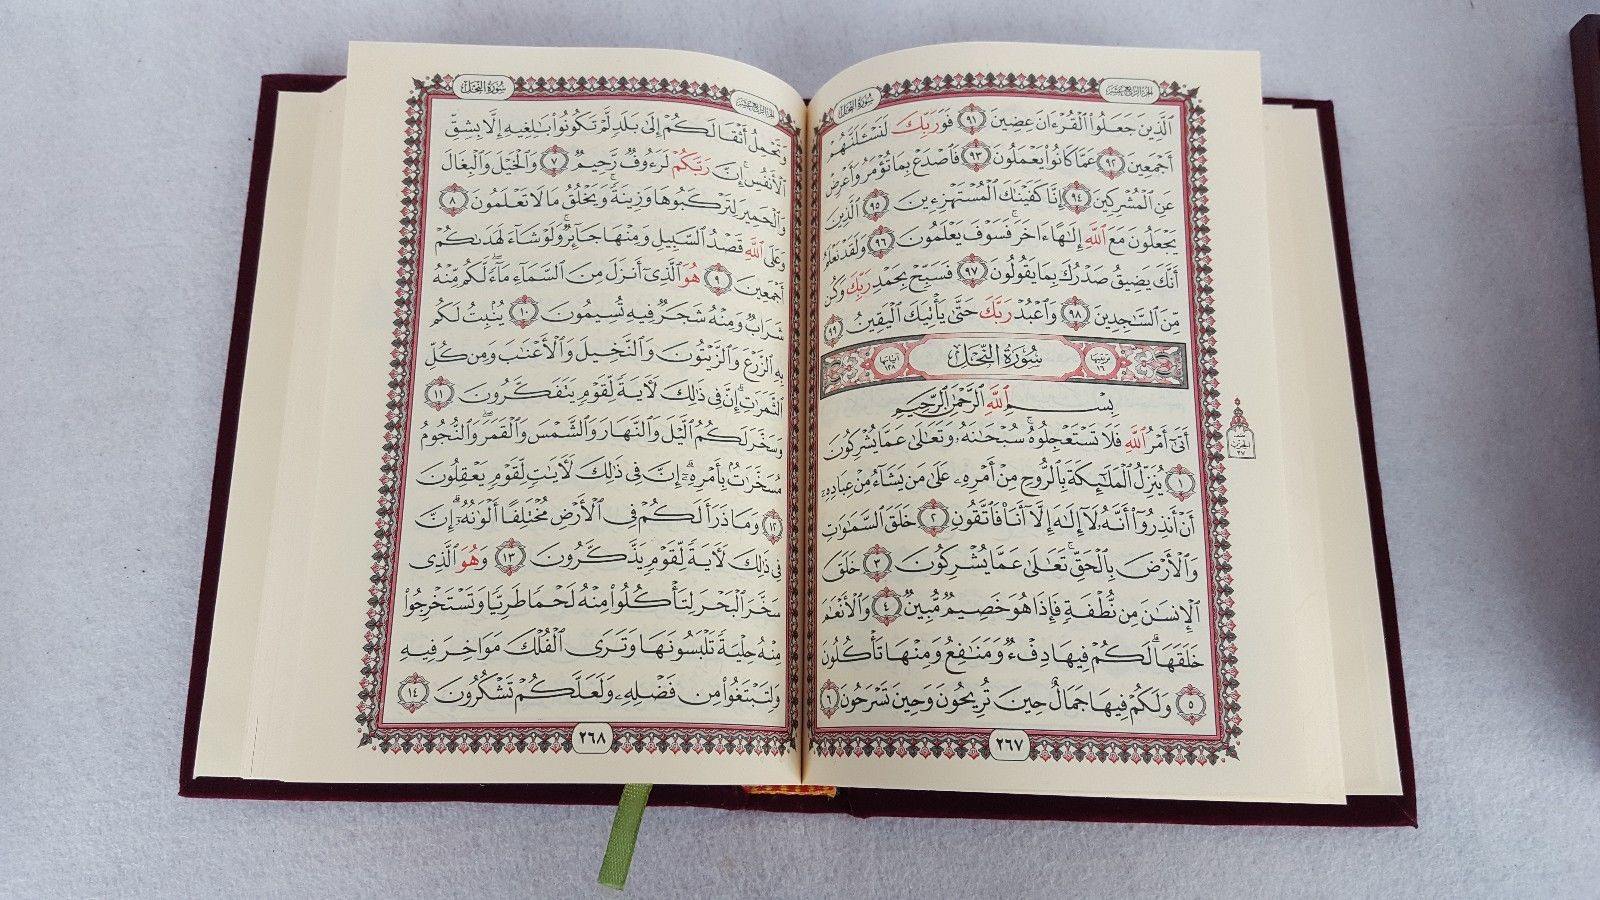 الجزء الرابع عشر
سورة النحل
الَّذِينَ جَعَلُوا۟ الْقُرْءَانَ عِضِينَ ٩١ فَوَرَبِّكَ لَنَسْـَٔلَنَّهُمْ
أَجْمَعِينَ ٩٢ عَمَّا كَانُوا۟ يَعْمَلُونَ ٩٣ فَاصْدَعْ بِمَا تُؤْمَرُ وَأَعْرِضْ
عَنِ الْمُشْرِكِينَ ٩٤ إِنَّا كَفَيْنَٰكَ الْمُسْتَهْزِءِينَ ٩٥ الَّذِينَ
يَجْعَلُونَ مَعَ اللَّهِ إِلَٰهًا ءَاخَرَ ۚ فَسَوْفَ يَعْلَمُونَ ٩٦ وَلَقَدْ نَعْلَمُ
أَنَّكَ يَضِيقُ صَدْرُكَ بِمَا يَقُولُونَ ٩٧ فَسَبِّحْ بِحَمْدِ رَبِّكَ وَكُن
مِّنَ السَّٰجِدِينَ ٩٨ وَاعْبُدْ رَبَّكَ حَتَّىٰ يَأْتِيَكَ الْيَقِينُ ٩٩
مرتيبها ١٦ سُورَةُ النَّحْلِ آياتها ١٢٨
بِسْمِ اللَّهِ الرَّحْمَٰنِ الرَّحِيمِ
أَتَىٰٓ أَمْرُ اللَّهِ فَلَا تَسْتَعْجِلُوهُ ۚ سُبْحَٰنَهُۥ وَتَعَٰلَىٰ عَمَّا يُشْرِكُونَ
١ يُنَزِّلُ الْمَلَٰٓئِكَةَ بِالرُّوحِ مِنْ أَمْرِهِۦ عَلَىٰ مَن يَشَآءُ مِنْ عِبَادِهِۦٓ
أَنْ أَنذِرُوٓا۟ أَنَّهُۥ لَآ إِلَٰهَ إِلَّآ أَنَا۠ فَاتَّقُونِ ٢ خَلَقَ السَّمَٰوَٰتِ
وَالْأَرْضَ بِالْحَقِّ ۚ تَعَٰلَىٰ عَمَّا يُشْرِكُونَ ٣ خَلَقَ
الْإِنسَٰنَ مِن نُّطْفَةٍ فَإِذَا هُوَ خَصِيمٌ مُّبِينٌ ٤ وَالْأَنْعَٰمَ
خَلَقَهَا ۗ لَكُمْ فِيهَا دِفْءٌ وَمَنَٰفِعُ وَمِنْهَا تَأْكُلُونَ
٥ وَلَكُمْ فِيهَا جَمَالٌ حِينَ تُرِيحُونَ وَحِينَ تَسْرَحُونَ ٦
٢٦٧
الجزء الرابع عشر
سورة النحل
وَتَحْمِلُ أَثْقَالَكُمْ إِلَىٰ بَلَدٍ لَّمْ تَكُونُوا۟ بَٰلِغِيهِ إِلَّا بِشِقِّ
الْأَنفُسِ ۚ إِنَّ رَبَّكُمْ لَرَءُوفٌ رَّحِيمٌ ٧ وَالْخَيْلَ وَالْبِغَالَ
وَالْحَمِيرَ لِتَرْكَبُوهَا وَزِينَةً ۚ وَيَخْلُقُ مَا لَا تَعْلَمُونَ ٨
وَعَلَى اللَّهِ قَصْدُ السَّبِيلِ وَمِنْهَا جَآئِرٌ ۚ وَلَوْ شَآءَ لَهَدَىٰكُمْ
أَجْمَعِينَ ٩ هُوَ الَّذِىٓ أَنزَلَ مِنَ السَّمَآءِ مَآءً ۖ لَّكُم مِّنْهُ
شَرَابٌ وَمِنْهُ شَجَرٌ فِيهِ تُسِيمُونَ ١٠ يُنۢبِتُ لَكُم
بِهِ الزَّرْعَ وَالزَّيْتُونَ وَالنَّخِيلَ وَالْأَعْنَٰبَ وَمِن كُلِّ
الثَّمَرَٰتِ ۗ إِنَّ فِى ذَٰلِكَ لَءَايَةً لِّقَوْمٍ يَتَفَكَّرُونَ ١١
وَسَخَّرَ لَكُمُ الَّيْلَ وَالنَّهَارَ وَالشَّمْسَ وَالْقَمَرَ ۖ وَالنُّجُومُ
مُسَخَّرَٰتٌۢ بِأَمْرِهِۦٓ ۗ إِنَّ فِى ذَٰلِكَ لَءَايَٰتٍ لِّقَوْمٍ يَعْقِلُونَ
١٢ وَمَا ذَرَأَ لَكُمْ فِى الْأَرْضِ مُخْتَلِفًا أَلْوَٰنُهُۥٓ ۗ إِنَّ
فِى ذَٰلِكَ لَءَايَةً لِّقَوْمٍ يَذَّكَّرُونَ ١٣ وَهُوَ الَّذِى
سَخَّرَ الْبَحْرَ لِتَأْكُلُوا۟ مِنْهُ لَحْمًا طَرِيًّا وَتَسْتَخْرِجُوا۟
مِنْهُ حِلْيَةً تَلْبَسُونَهَا وَتَرَى الْفُلْكَ مَوَاخِرَ فِيهِ
وَلِتَبْتَغُوا۟ مِن فَضْلِهِۦ وَلَعَلَّكُمْ تَشْكُرُونَ ١٤
٢٦٨